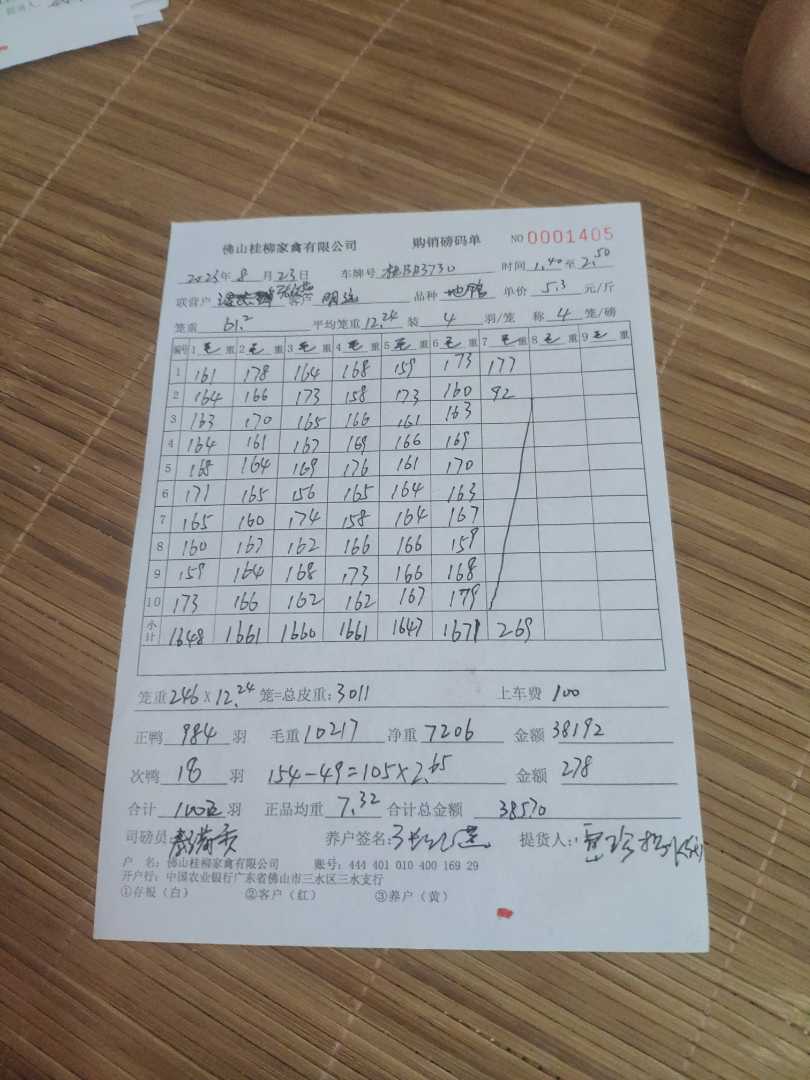 佛山桂柳家禽有限公司 购销磅码单 NO 0001405
2023年8月23日 车牌号 时间 1.40 至 2.50
联营户 客户 明远 品种 地鸭 单价 5.3 元/斤
笼重 61.2 平均笼重 12.24 装 4 羽/笼 称 4 笼/磅
编号 1 毛 重 2 毛 重 3 毛 重 4 毛 重 5 毛 重 6 毛 重 7 毛 重 8 毛 重 9 毛 重
1 161 178 164 168 159 173 177
2 164 166 173 158 173 160 92
3 163 170 165 166 161 163
4 164 161 167 169 166 169
5 168 164 169 176 161 170
6 171 165 156 165 164 163
7 165 160 174 158 164 167
8 160 167 162 166 166 159
9 159 164 168 173 166 168
10 173 166 162 162 167 179
小计 1648 1661 1660 1661 1647 1671 269
笼重 246 X 12.24 笼=总皮重: 3011 上车费 100
正鸭 984 羽 毛重 10217 净重 7206 金额 38192
次鸭 18 羽 154-49=105×2.65 金额 278
合计 羽 正品均重 7.32 合计总金额 38570
司磅员: 养户签名: 提货人:
户 名: 佛山桂柳家禽有限公司 账号: 444 401 010 400 169 29
开户行: 中国农业银行广东省佛山市三水区三水支行
①存根（白） ②客户（红） ③养户（黄）